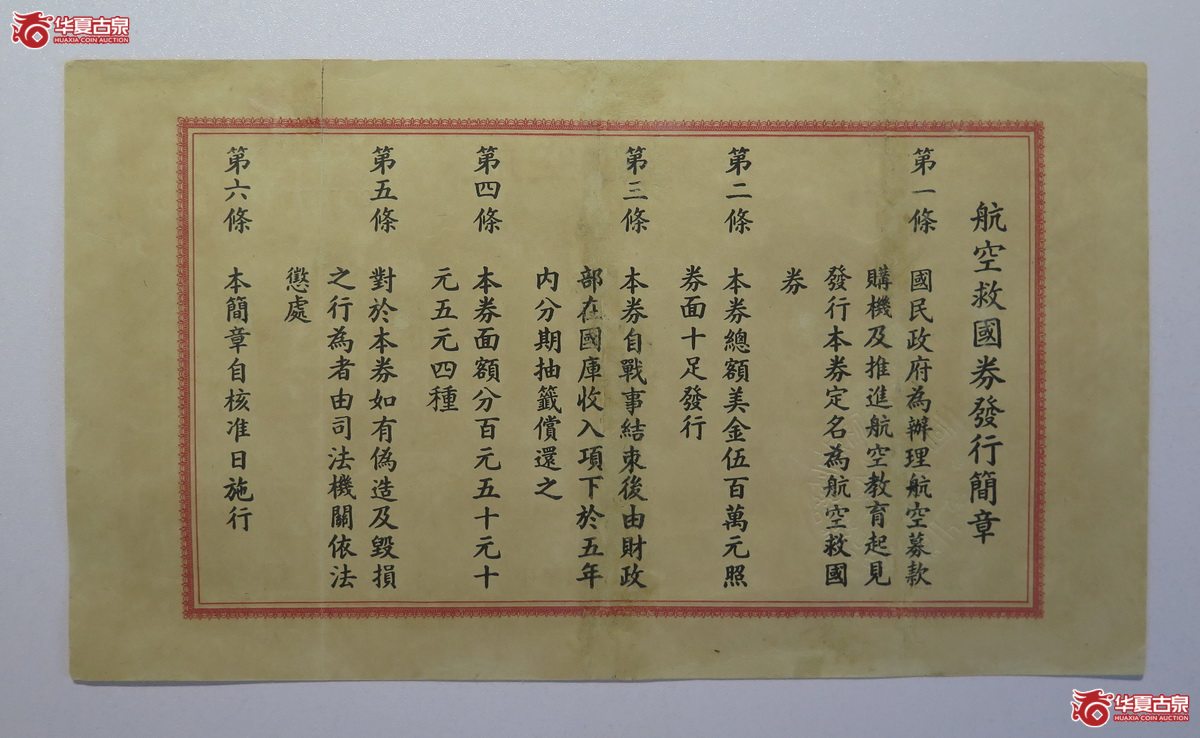 华夏古泉
HUAXIA COIN AUCTION
航空救國券發行簡章
第一條 國民政府為辦理航空募款
購機及推進航空教育起見
發行本券定名為航空救國
券
第二條 本券總額美金伍百萬元照
券面十足發行
第三條 本券自戰事結束後由財政
部在國庫收入項下於五年
内分期抽籤償還之
第四條 本券面額分百元五十元十
元五元四種
第五條 對於本券如有偽造及毀損
之行為者由司法機關依法
懲處
第六條 本簡章自核准日施行
华夏古泉
HUAXIA COIN AUCTION